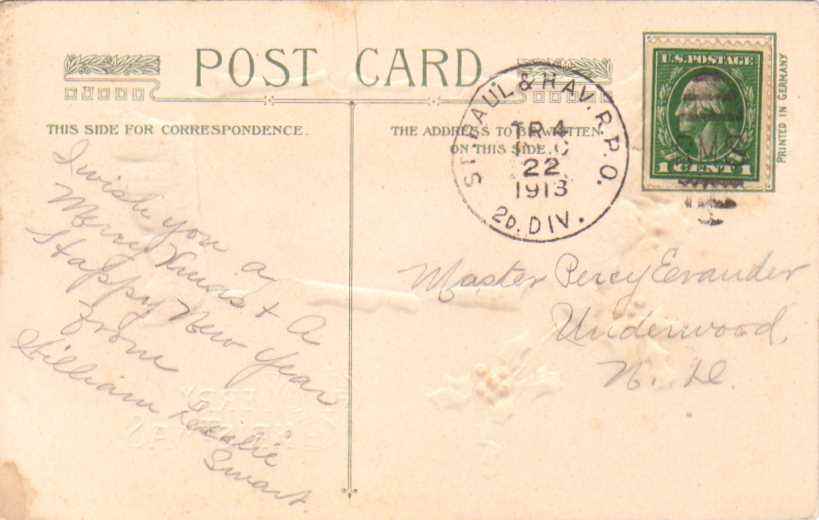 POST CARD
THIS SIDE FOR CORRESPONDENCE.
THE ADDRESS TO BE WRITTEN
ON THIS SIDE.
ST. PAUL & HAV. R.P.O.
TR 4
22
1913
2D. DIV.
U.S. POSTAGE
1 CENT 1
PRINTED IN GERMANY
I wish you a
Merry Xmas & A
Happy New Year
from
William Leslie
Smart.
Master Percy Evander
Underwood,
N. D.